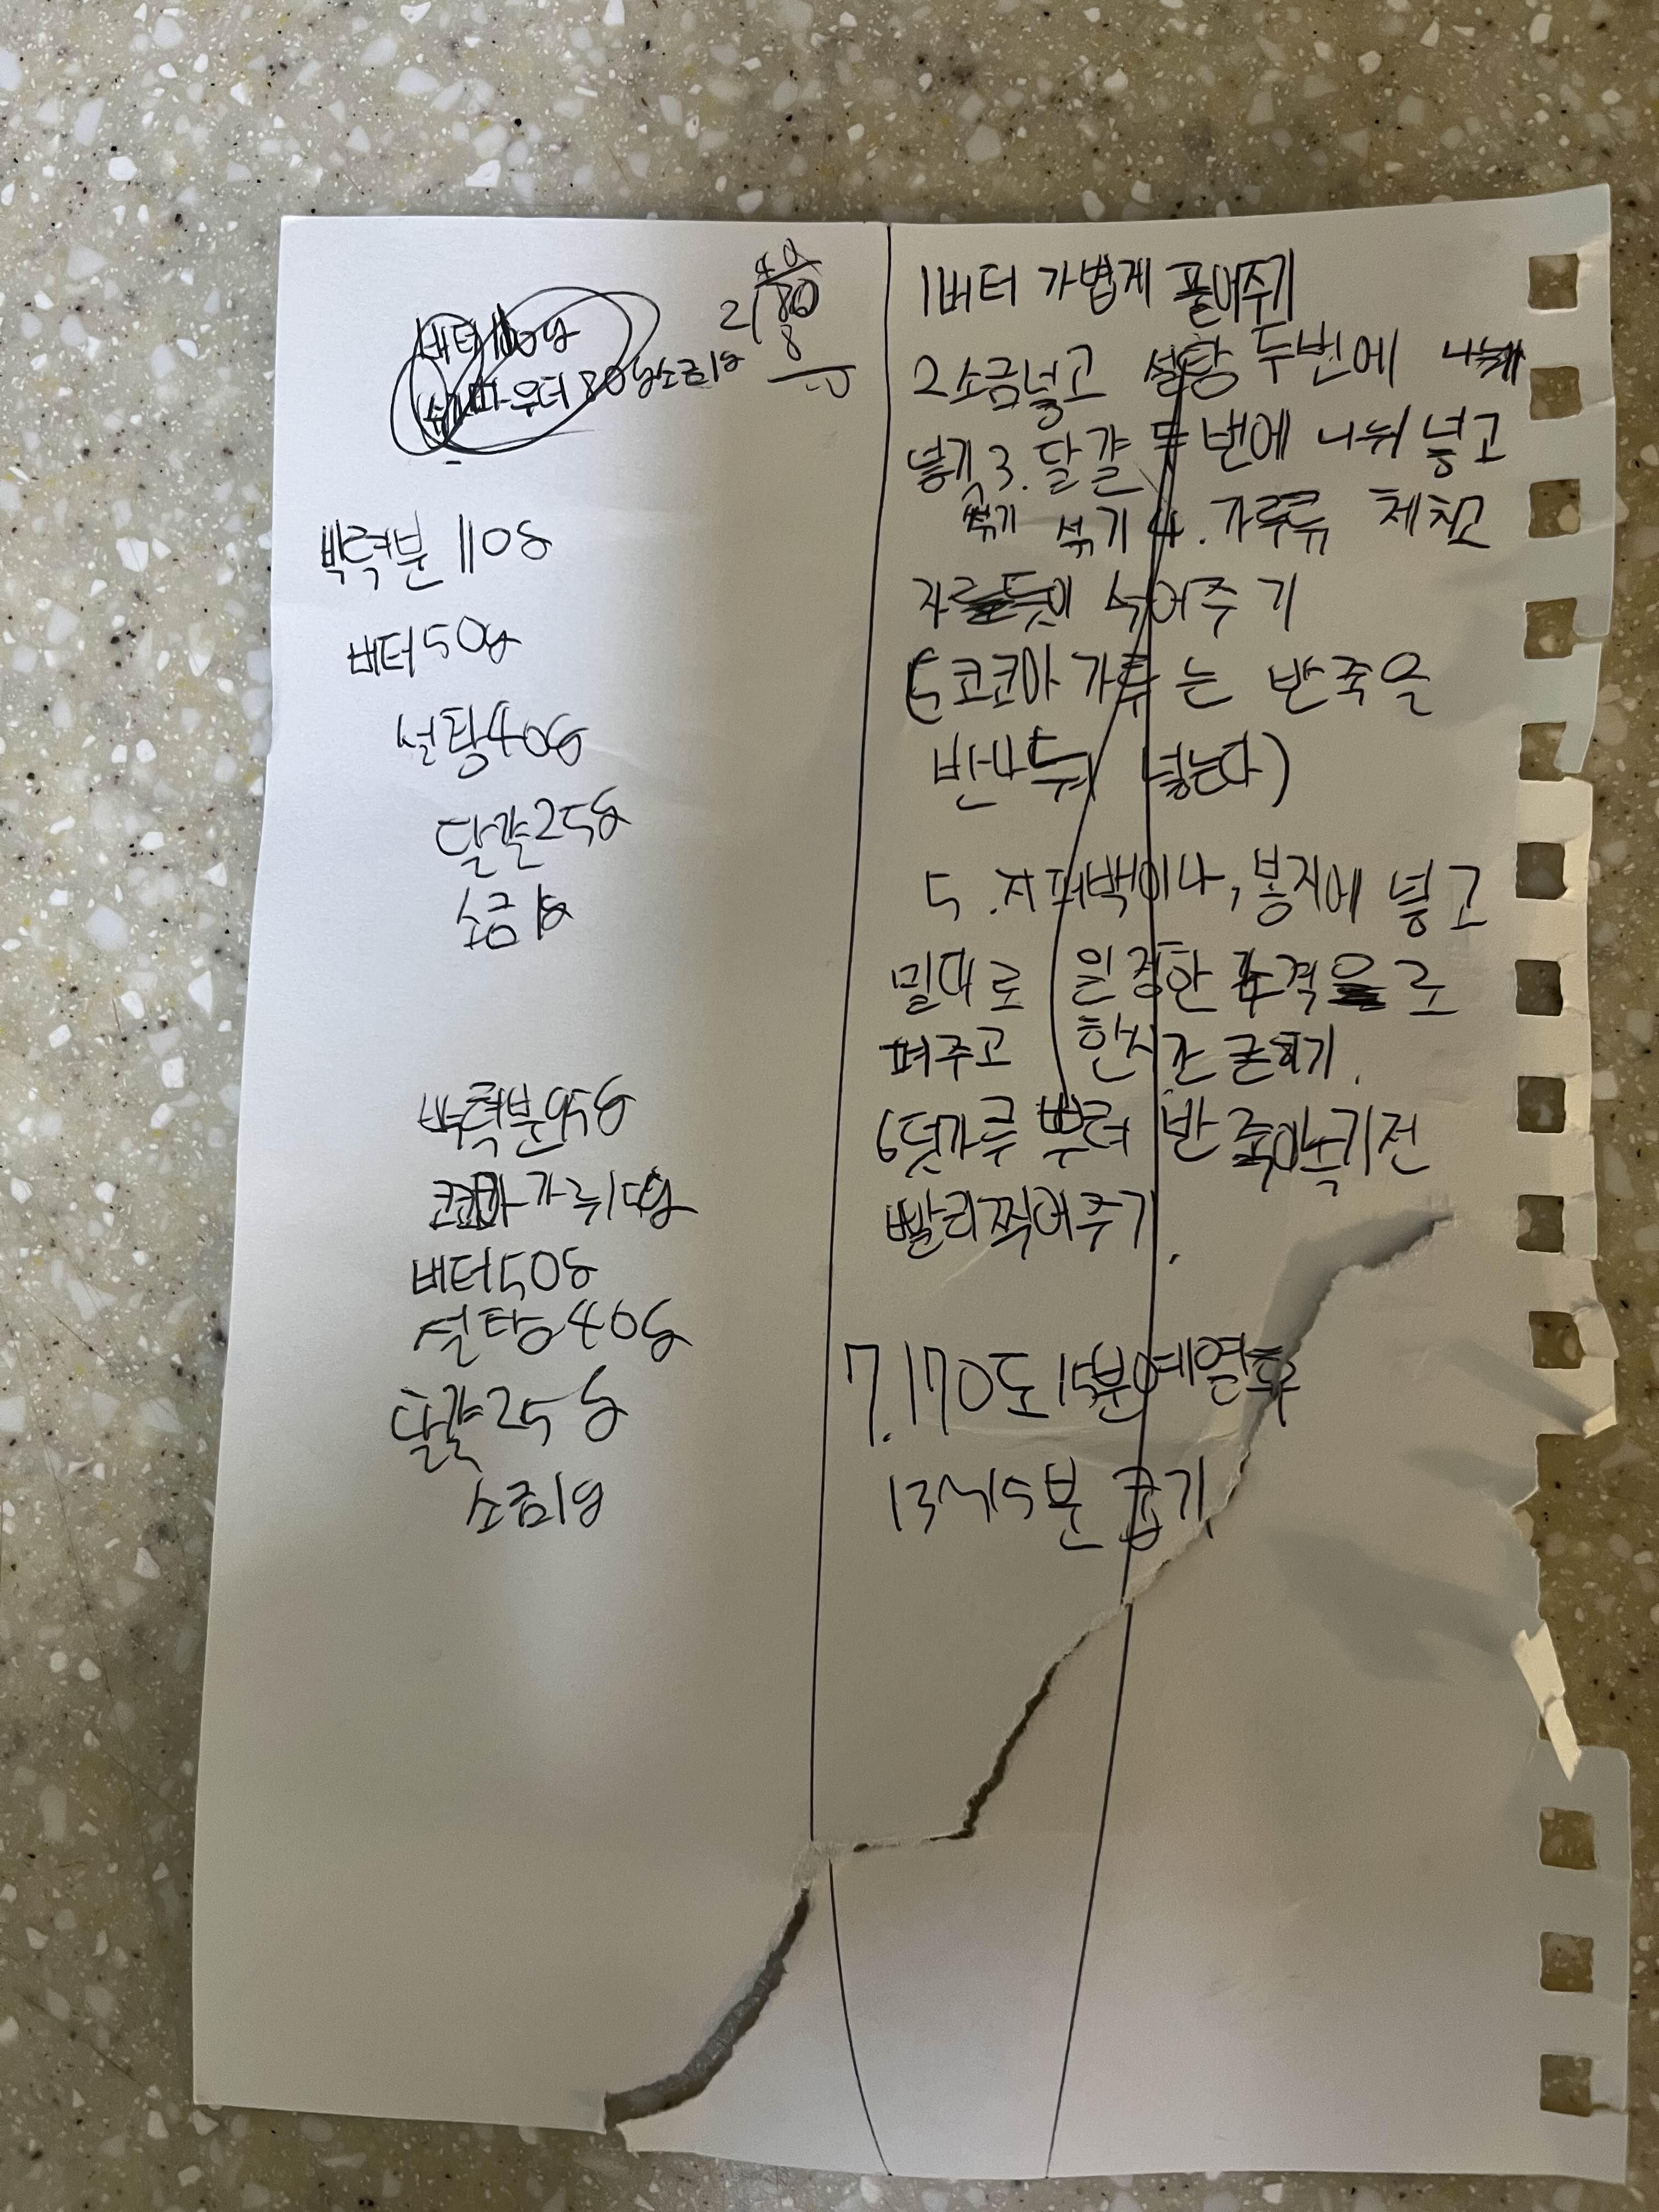 버터100g
슈가파우더 80g소금1g
40
2)80
8
0
박력분 110g
버터50g
설탕40g
달걀25g
소금1g
박력분95g
코코아가루15g
버터50g
설탕40g
달걀25g
소금1g
1버터 가볍게 풀어주기
2소금넣고 설탕 두번에 나눠
넣기 3. 달걀 두번에 나눠 넣고
섞기 섞기 4. 가루류 체치고
자르듯이 섞어주기
(5코코아 가루는 반죽을
반나눠 넣는다)
5. 지퍼백이나, 봉지에 넣고
밀대로 일정한 간격으로
펴주고 한시간 굳히기.
6덧가루 뿌려 반죽이녹기전
빨리찍어주기.
7.170도15분예열후
13~15분 굽기